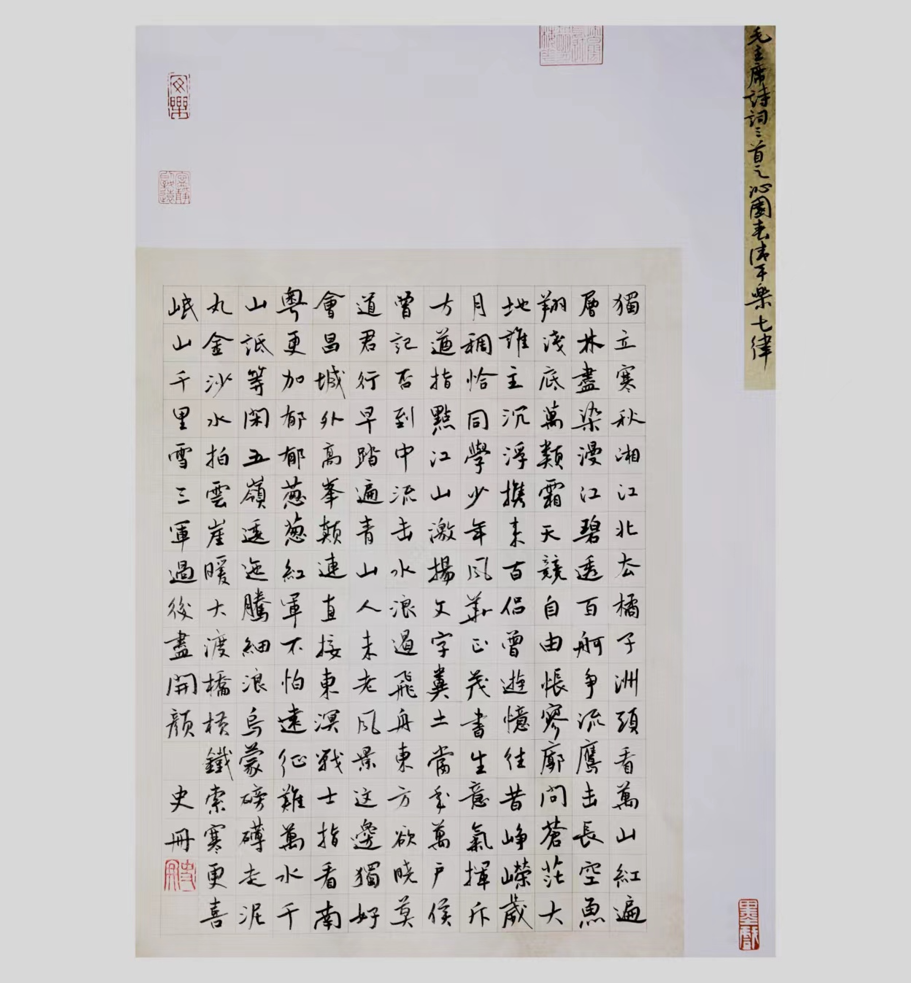 毛主席詩詞三首之沁園春清平樂七律
獨立寒秋湘江北去橘子洲頭看萬山紅遍
層林盡染漫江碧透百舸爭流鷹击長空魚
翔淺底萬類霜天競自由悵寥廓问蒼茫大
地誰主沉浮攜來百侶曾遊憶往昔崢嶸歲
月稠恰同學少年風華正茂書生意氣揮斥
方遒指點江山激揚文字糞土當年萬戶侯
曾記否到中流击水浪遏飛舟東方欲曉莫
道君行早踏遍青山人未老風景这邊獨好
會昌城外高峯顛連直接東溟戰士指看南
粵更加郁郁葱葱紅軍不怕遠征難萬水千
山祇等闲五嶺逶迤騰細浪烏蒙磅礴走泥
丸金沙水拍雲崖暖大渡橋橫鐵索寒更喜
岷山千里雪三軍過後盡開顏
史冊
墨戲